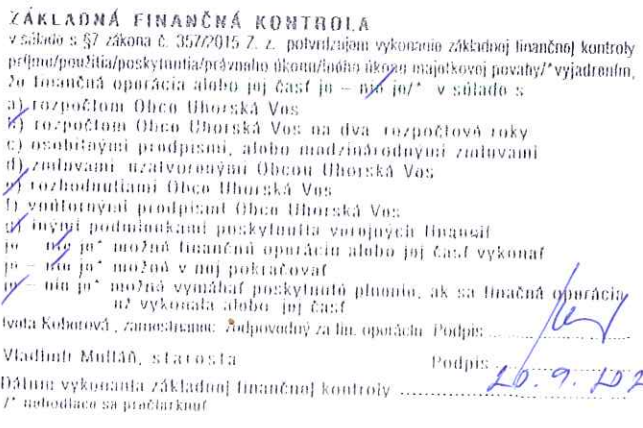 ZÁKLADNÁ FINANČNÁ KONTROLA
v súlade s §7 zákona č. 357/2015 Z. z. potvrdzujem vykonanie základnej finančnej kontroly
príjmu/použitia/poskytnutia/právneho úkonu/iného úkonu majetkovej povahy/*vyjadrením,
že finančná operácia alebo jej časť je – nie je/* v súlade s
a) rozpočtom Obce Uhorská Ves
b) rozpočtom Obce Uhorská Ves na dva rozpočtové roky
c) osobitnými predpismi, alebo medzinárodnými zmluvami
d) zmluvami uzatvorenými Obcou Uhorská Ves
e) rozhodnutiami Obce Uhorská Ves
f) vnútornými predpismi Obce Uhorská Ves
g) inými podmienkami poskytnutia verejných financií
je – nie je* možné finančnú operáciu alebo jej časť vykonať
je – nie je* možné v nej pokračovať
je – nie je* možné vymáhať poskytnuté plnenie, ak sa finačná operácia
už vykonala alebo jej časť
Iveta Koborová, zamestnanec zodpovedný za fin. operáciu Podpis
Vladimír Mulláň, starosta Podpis
Dátum vykonania základnej finančnej kontroly 20.9.202
/* nehodiace sa prečiarknuť